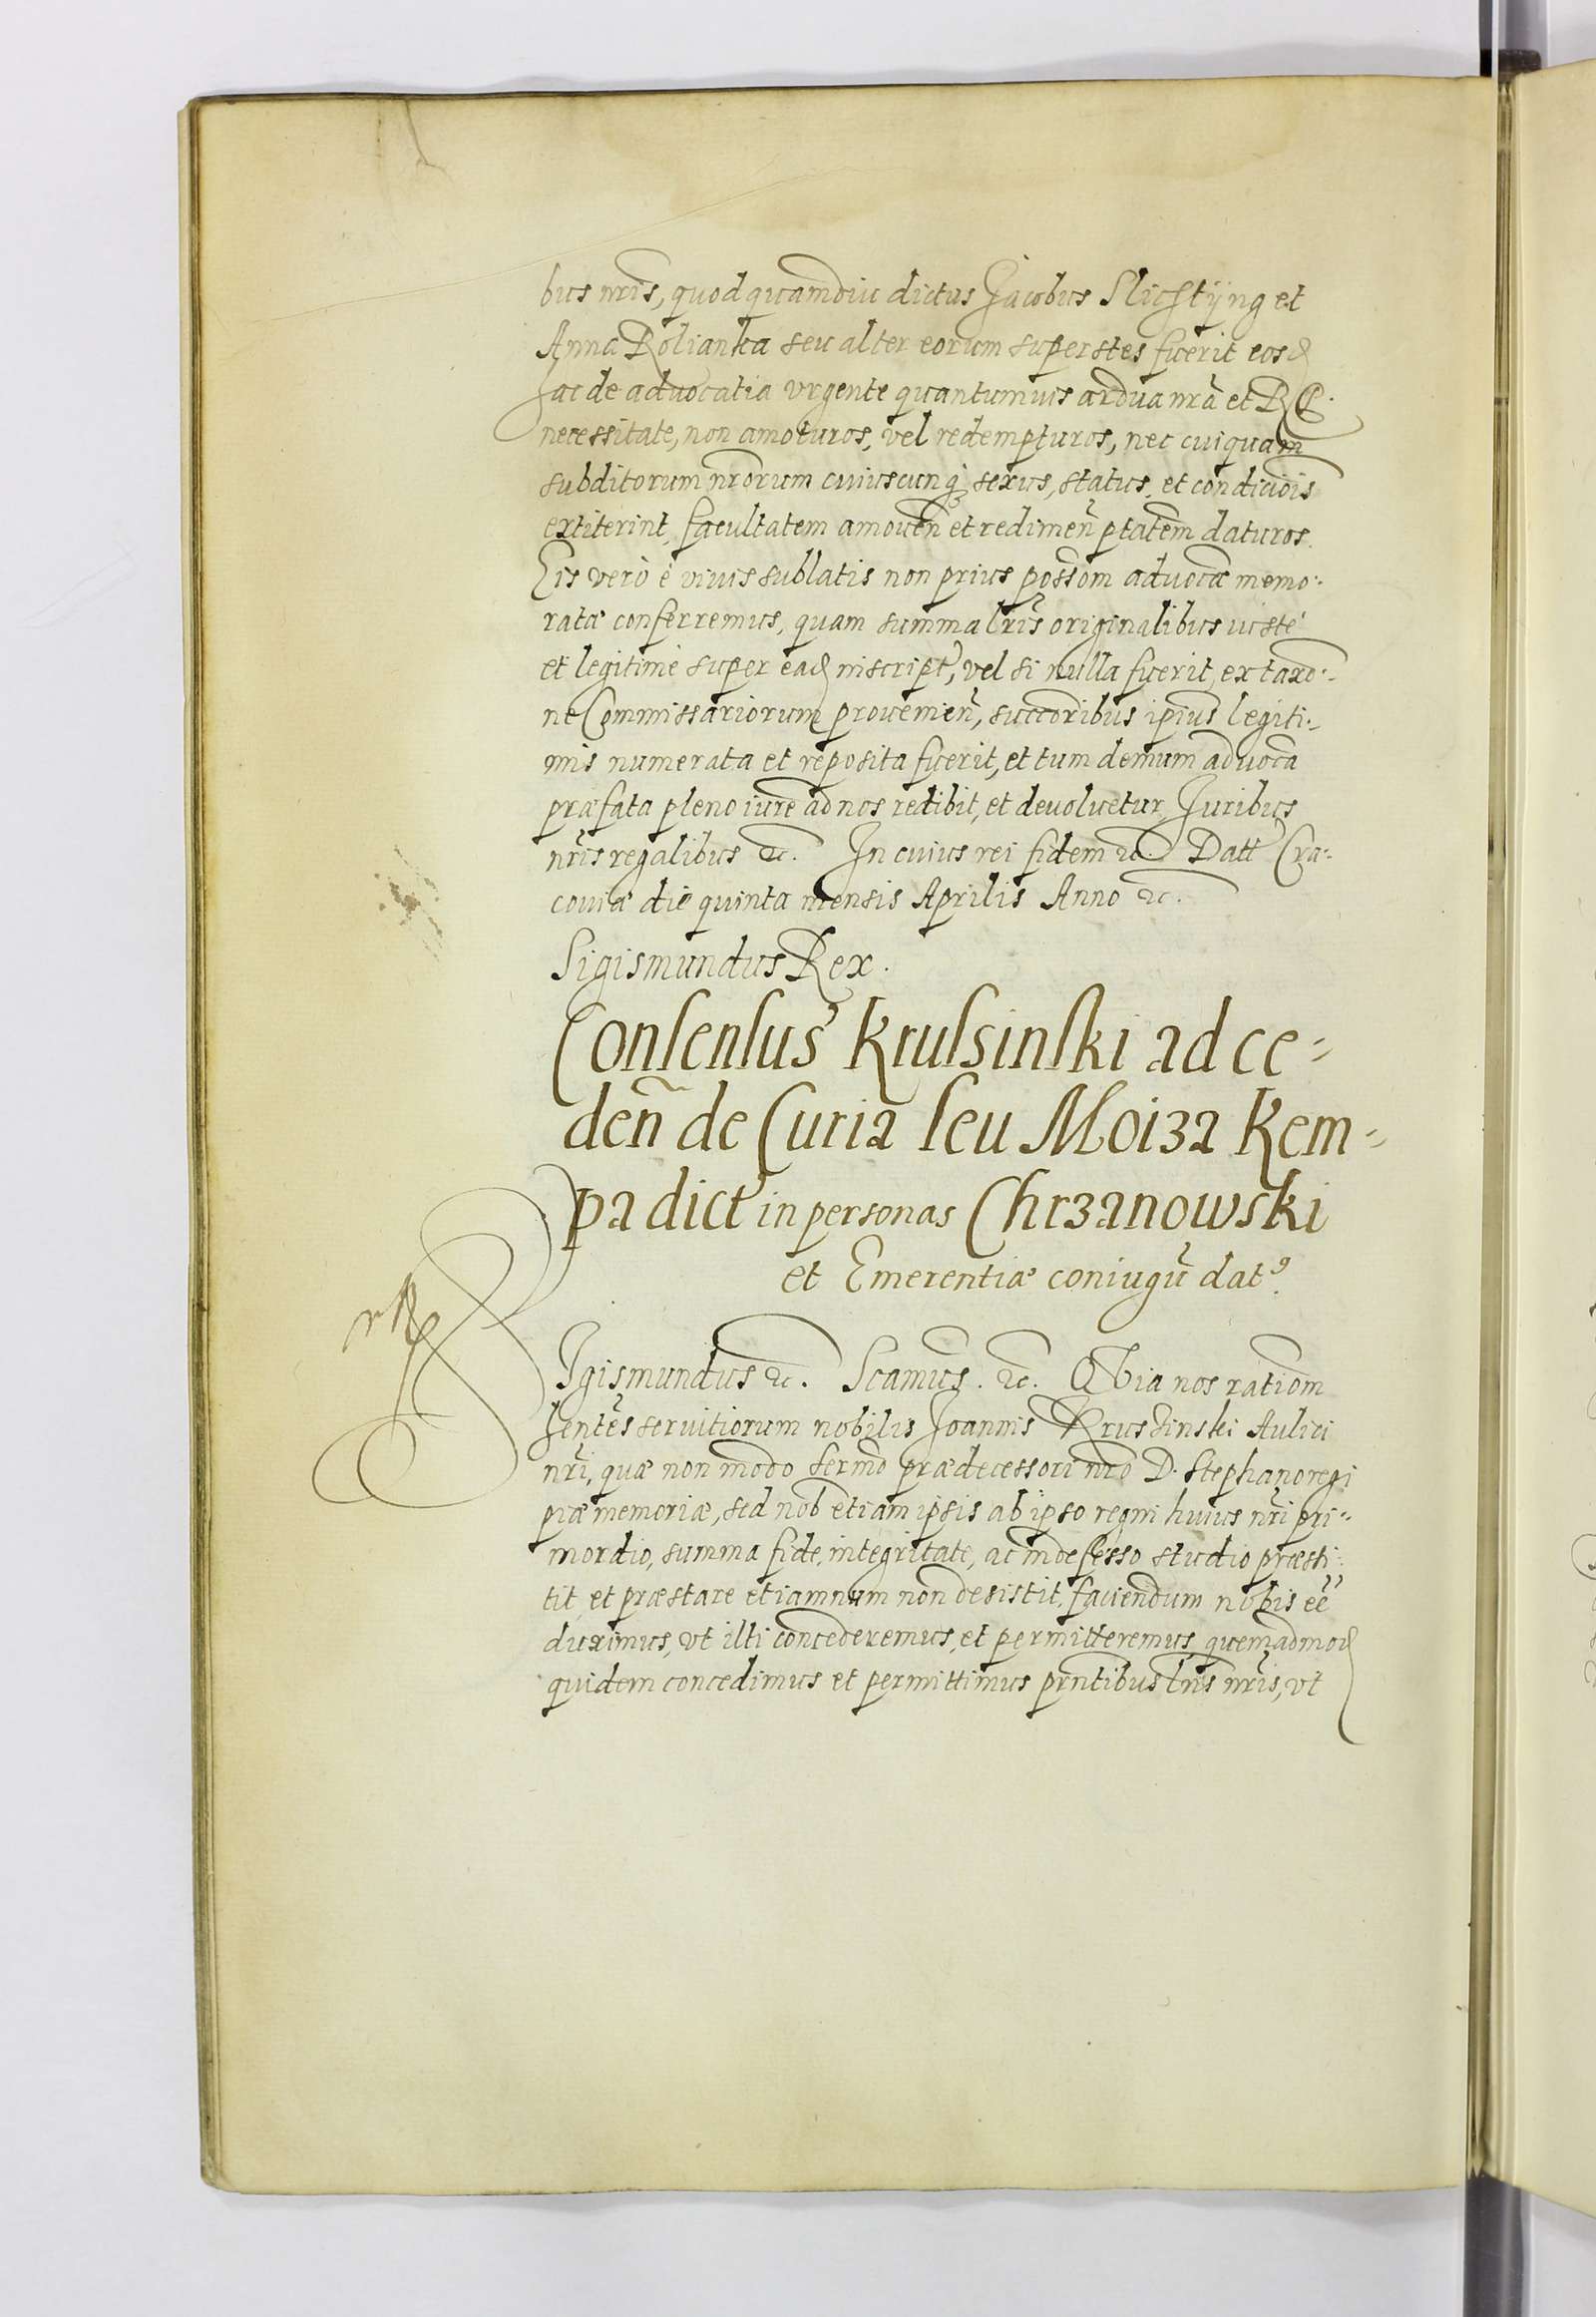 bus nr̃is, quod quamdiu dictus Jacobus Slichtijng et
Anna Rolianka seu alter eorum superstes fuerit eosd
hac de advocatia vrgente quantumuis ardua nrã et R P.
necessitate, non amoturos, vel redempturos, nec cuiquam
subditorum nrorum cuiuscunq sexus, status, et condiciois
extiterint, facultatem amouen̄ et redimen̄ ptatem daturos.
Eis verò è viuis sublatis non prius possom advocæ memo:
ratæ conferremus, quam summa lrīs originalibus iustè
et legitimè super ead inscript, vel si nulla fuerit, ex taxo:
ne Commissariorum prouenien̄, succoribus ipius legiti:
mis numerata et reposita fuerit, et tum demum advoca
præfata pleno iure ad nos redibit, et devoluetur, Juribus
nr̃is regalibus &c. In cuius rei fidem &c. Datt Cra:
couiæ die quinta mensis Aprilis Anno &c.
Sigismundus Rex.
Consensus Krusinski ad ce=
den̄ de Curia seu Moiza Kem=
pa dict in personas Chrzanowski
et Emerentiæ coniugū dat9.
SJgismundus &c. Scamus. &c. QVia nos rationm
hentēs seruitiorum nobilis Joannis Krusinski Aulici
nr̃i, quæ non modo sermo prædecessori nro D. Stephano regi
piæ memoriæ, sed nob etiam ipsis ab ipso regni huius nr̃i pri:
mordio, summa fide, integritate, ac indefesso studio præsti:
tit, et præstare etiamnum non desistit, faciendum nobis eē
duximus, vt illi concederemus, et permitteremus quemadmod
quidem concedimus et permittimus prntibus lris nr̃is, vt